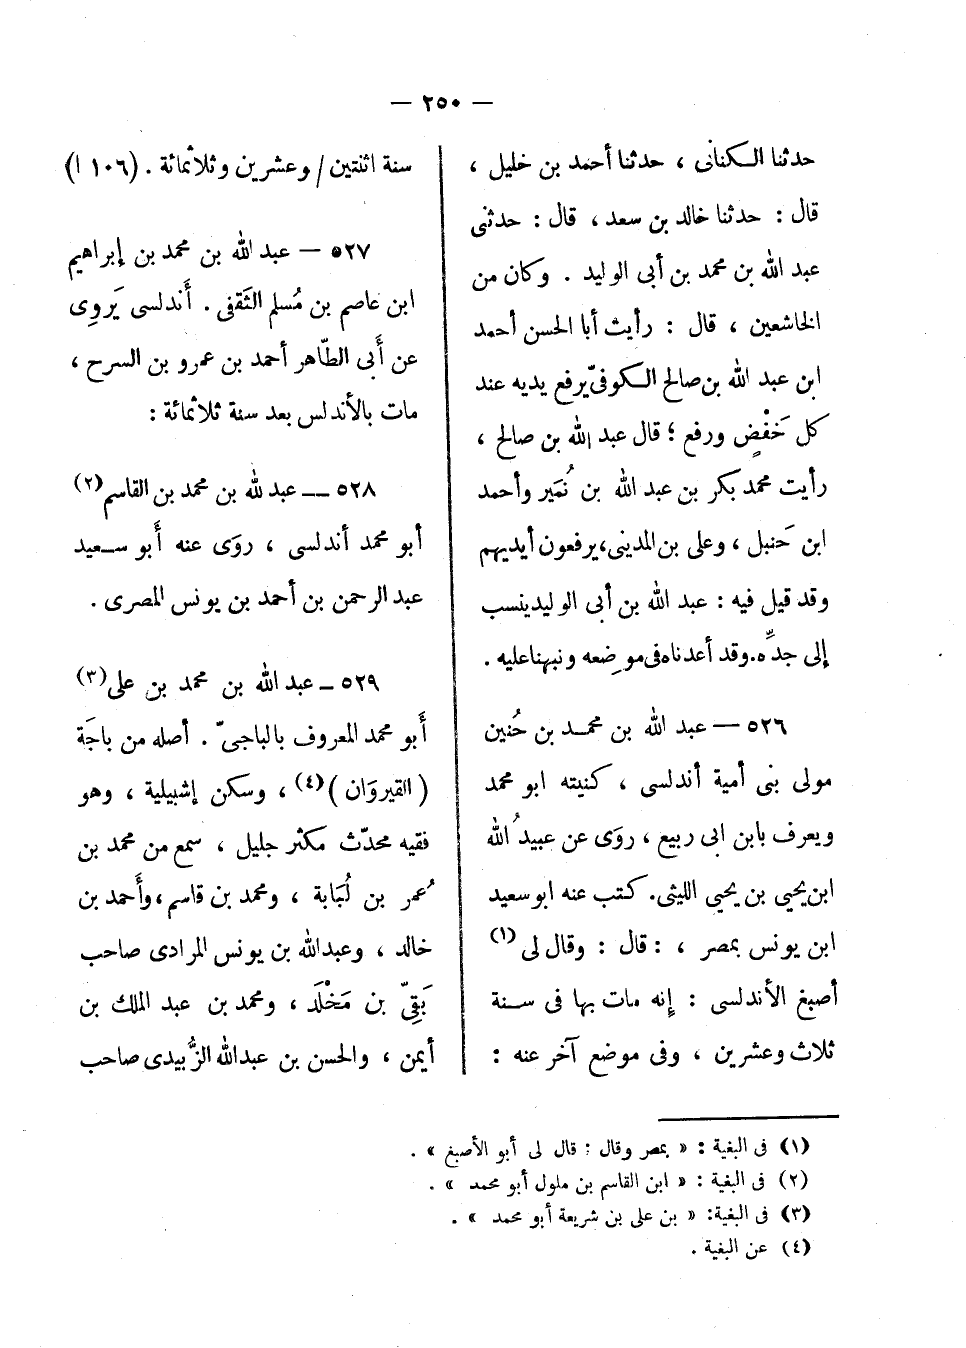 — ٢٥٠ —
حدثنا الكنانى ، حدثنا أحمد بن خليل ،
قال : حدثنا خالد بن سعد ، قال : حدثنى
عبد الله بن محمد بن أبى الوليد . وكان من
الخاشعين ، قال : رأيت أبا الحسن أحمد
ابن عبد الله بن صالح الكوفىّ يرفع يديه عند
كل خَفْضٍ ورفع ؛ قال عبد الله بن صالح ،
رأيت محمد بكر بن عبد الله بن نُمَير وأحمد
ابن حَنبل ، وعلى بن المدينى ، يرفعون أيديهم
وقد قيل فيه : عبد الله بن أبى الوليد ينسب
إلى جدِّه . وقد أعدناه فى موضعه ونبهنا عليه .
٥٢٦ — عبد الله بن محمد بن حُنين
مولى بنى أمية أندلسى ، كنيته ابو محمد
ويعرف بابن ابى ربيع ، روَى عن عبيدُ الله
ابن يحيي بن يحيي الليثى . كتب عنه ابو سعيد
ابن يونس بمصر ، : قال : وقال لى (١)
أصبغ الأندلسى : إنه مات بها فى سنة
ثلاث وعشرين ، وفى موضع آخر عنه :
سنة اثنتين / وعشرين وثلاثمائة . (١٠٦ ا)
٥٢٧ — عبد الله بن محمد بن إبراهيم
ابن عاصم بن مُسلم الثَقفى . أَندلسى يَروِى
عن أَبى الطّاهر أحمد بن عمرو بن السرح ،
مات بالأندلس بعد سنة ثلاثمائة :
٥٢٨ — عبد لله بن محمد بن القاسم (٢)
أبو محمد أندلسى ، روَى عنه أَبو سعيد
عبد الرحمن بن أحمد بن يونس المصرى .
٥٢٩ — عبد الله بن محمد بن على (٣)
أَبو محمد المعروف بالباجىّ . أصله من باجَة
( القيروَان ) (٤) ، وسكن إشبيلية ، وهو
فقيه محدّث مكثر جليل ، سمع من محمد بن
عُمر بن لُبَابة ، ومحمد بن قاسم ، وأَحمد بن
خالد ، وعبدالله بن يونس المرادى صاحب
بَقِىّ بن مَخْلَد ، ومحمد بن عبد الملك بن
أيمن ، والحسن بن عبدالله الزُّبيدى صاحب
(١) فى البغية : « بمصر وقال : قال لى أبو الأصبغ » .
(٢) فى البغية : « ابن القاسم بن ملول أبو محمد » .
(٣) فى البغية: « بن على بن شريعة أبو محمد » .
(٤) عن البغية .